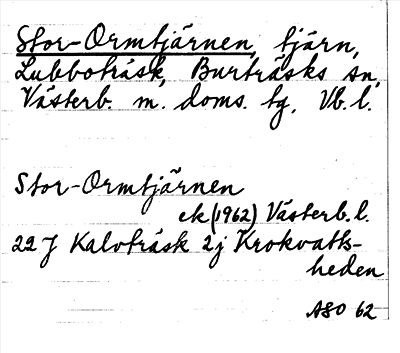 Stor-Ormtjärnen, tjärn,
Lubboträsk, Burträsks sn,
Västerb. m. doms. tg, Vb. l.
Stor-Ormtjärnen
ek (1962) Västerb. l.
22 J Kalvträsk 2 j Krokvatts-
heden
ASO 62